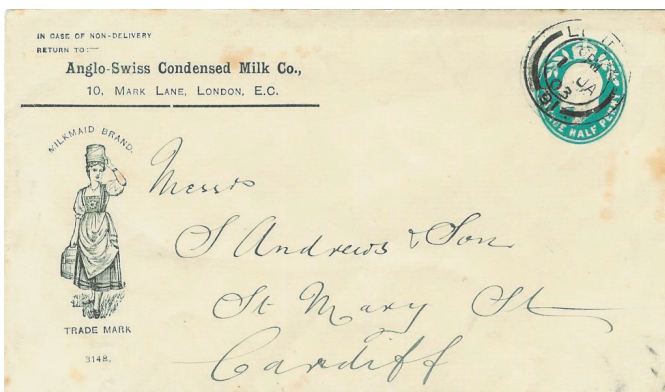 IN CASE OF NON-DELIVERY
RETURN TO:—
Anglo-Swiss Condensed Milk Co.,
10, MARK LANE, LONDON, E.C.
MILKMAID BRAND.
TRADE MARK
3148.
HALF PENNY
JA
03
Messrs
S Andrews & Son
St Mary St
Cardiff